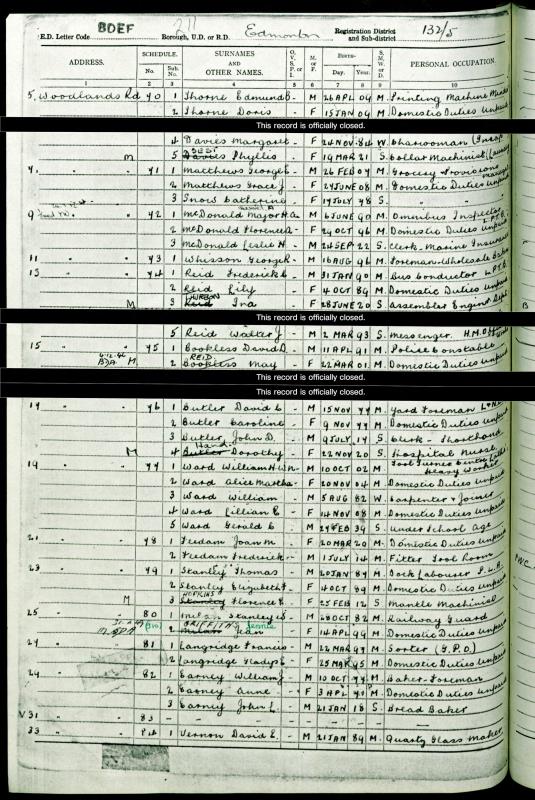 BDEF 211 Edmonton 132/5
E.D. Letter Code Borough, U.D. or R.D. Registration District and Sub-district
ADDRESS. SCHEDULE. No. Sub. No. SURNAMES AND OTHER NAMES. O. V. S. P. or I. M. or F. BIRTH— Day. Year. S. M. W. or D. PERSONAL OCCUPATION.
1 2 3 4 5 6 7 8 9 10
5 Woodlands Rd 70 1 Thorne Edmund - M 26 APL 09 M. Printing Machine
2 Thorne Doris - F 15 JAN 09 M. Domestic Duties Unpaid
This record is officially closed.
4 Davies Margaret - F 24 NOV 84 W. Charwoman
M 5 Davies Phyllis - F 19 MAR 21 S Collar Machinist
7 " " 71 1 Matthews George - M 26 FEB 07 M. Grocery Provisions
2 Matthews Grace J - F 24 JUNE 08 M. Domestic Duties unpaid
3 Snow Catherine - F 19 JULY 78 S " "
9 " " 72 1 McDonald Major H.A. - M 6 JUNE 90 M. Omnibus Inspector L.P.T.B.
2 McDonald Florence - F 24 OCT 96 M. Domestic Duties Unpaid
3 McDonald Leslie H. - M 24 SEP 22 S. Clerk - Marine Insurance
11 " " 73 1 Whisson George - M 16 AUG 96 M. Foreman - Wholesale
13 " " 74 1 Reid Frederick - M 31 JAN 90 M. Bus Conductor L.P.T.B.
2 Reid Lily - F 4 OCT 89 M. Domestic Duties Unpaid
M 3 Reid Ina - F 28 JUNE 20 S Assembler Engin Dept
This record is officially closed.
5 Reid Walter J - M 2 MAR 93 S. Messenger. H.M.
15 75 1 Bookless David D. - M 11 APL 91 M. Police Constable
M. 2 Bookless REID May - F 22 MAR 01 M. Domestic Duties Unpaid
This record is officially closed.
This record is officially closed.
17 " " 76 1 Butler David - M 15 NOV 77 M. Yard Foreman L.N.E.
2 Butler Caroline - F 9 NOV 77 M. Domestic Duties Unpaid
3 Butler John D. - M 9 JULY 17 S Clerk - Shorthand
M 4 Butler Dorothy - F 22 NOV 20 S. Hospital Nurse
19 " " 77 1 Ward William H - M 10 OCT 02 M. Tool Turner Heavy Worker
2 Ward Alice Martha - F 20 NOV 04 M. Domestic Duties Unpaid
3 Ward William - M 5 AUG 82 W. Carpenter & Joiner
4 Ward Lillian - F 14 NOV 08 M. Domestic Duties Unpaid
5 Ward Gerald - M 27 FEB 39 S Under School Age
21 " " 78 1 Feedam Joan M - F 20 MAR 20 M. Domestic Duties Unpaid
2 Feedam Frederick - M 1 JULY 14 M. Fitter Tool Room
23 " " 79 1 Stanley Thomas - M 20 JAN 89 M. Dock Labourer P.L.A.
2 Stanley Elizabeth - F 4 OCT 89 M. Domestic Duties Unpaid
M 3 Stanley HOPKINS Florence - F 25 FEB 12 S Mantle Machinist
25 " " 80 1 Milan Stanley - M 28 OCT 82 M. Railway Guard
2 Milan GRIFFITHS Jean Jennie - F 14 APL 99 M. Domestic Duties Unpaid
27 " " 81 1 Langridge Francis - M 22 MAR 97 M. Sorter (G.P.O.)
2 Langridge Gladys - F 25 MAR 95 M. Domestic Duties Unpaid
29 " " 82 1 Barney William J - M 10 OCT 77 M. Baker - Foreman
2 Barney Anne - F 3 APL M. Domestic Duties Unpaid
3 Barney John - M 21 JAN 18 S. Bread Baker
V 31 " " 83 - - - - - -
33 " " 84 1 Vernon David E. - M 21 JAN 89 M. Quartz Glass Maker